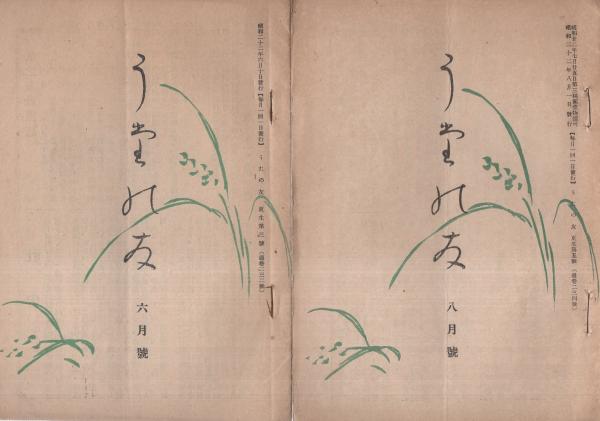 昭和二十二年八月一日發行【每月一回一日發行】うたの友 更生第五號(通卷二三四號)
うたの友
八月號
昭和二十二年六月十日發行【每月一回一日發行】うたの友 更生第三號(通卷二三二號)
うたの友
六月號